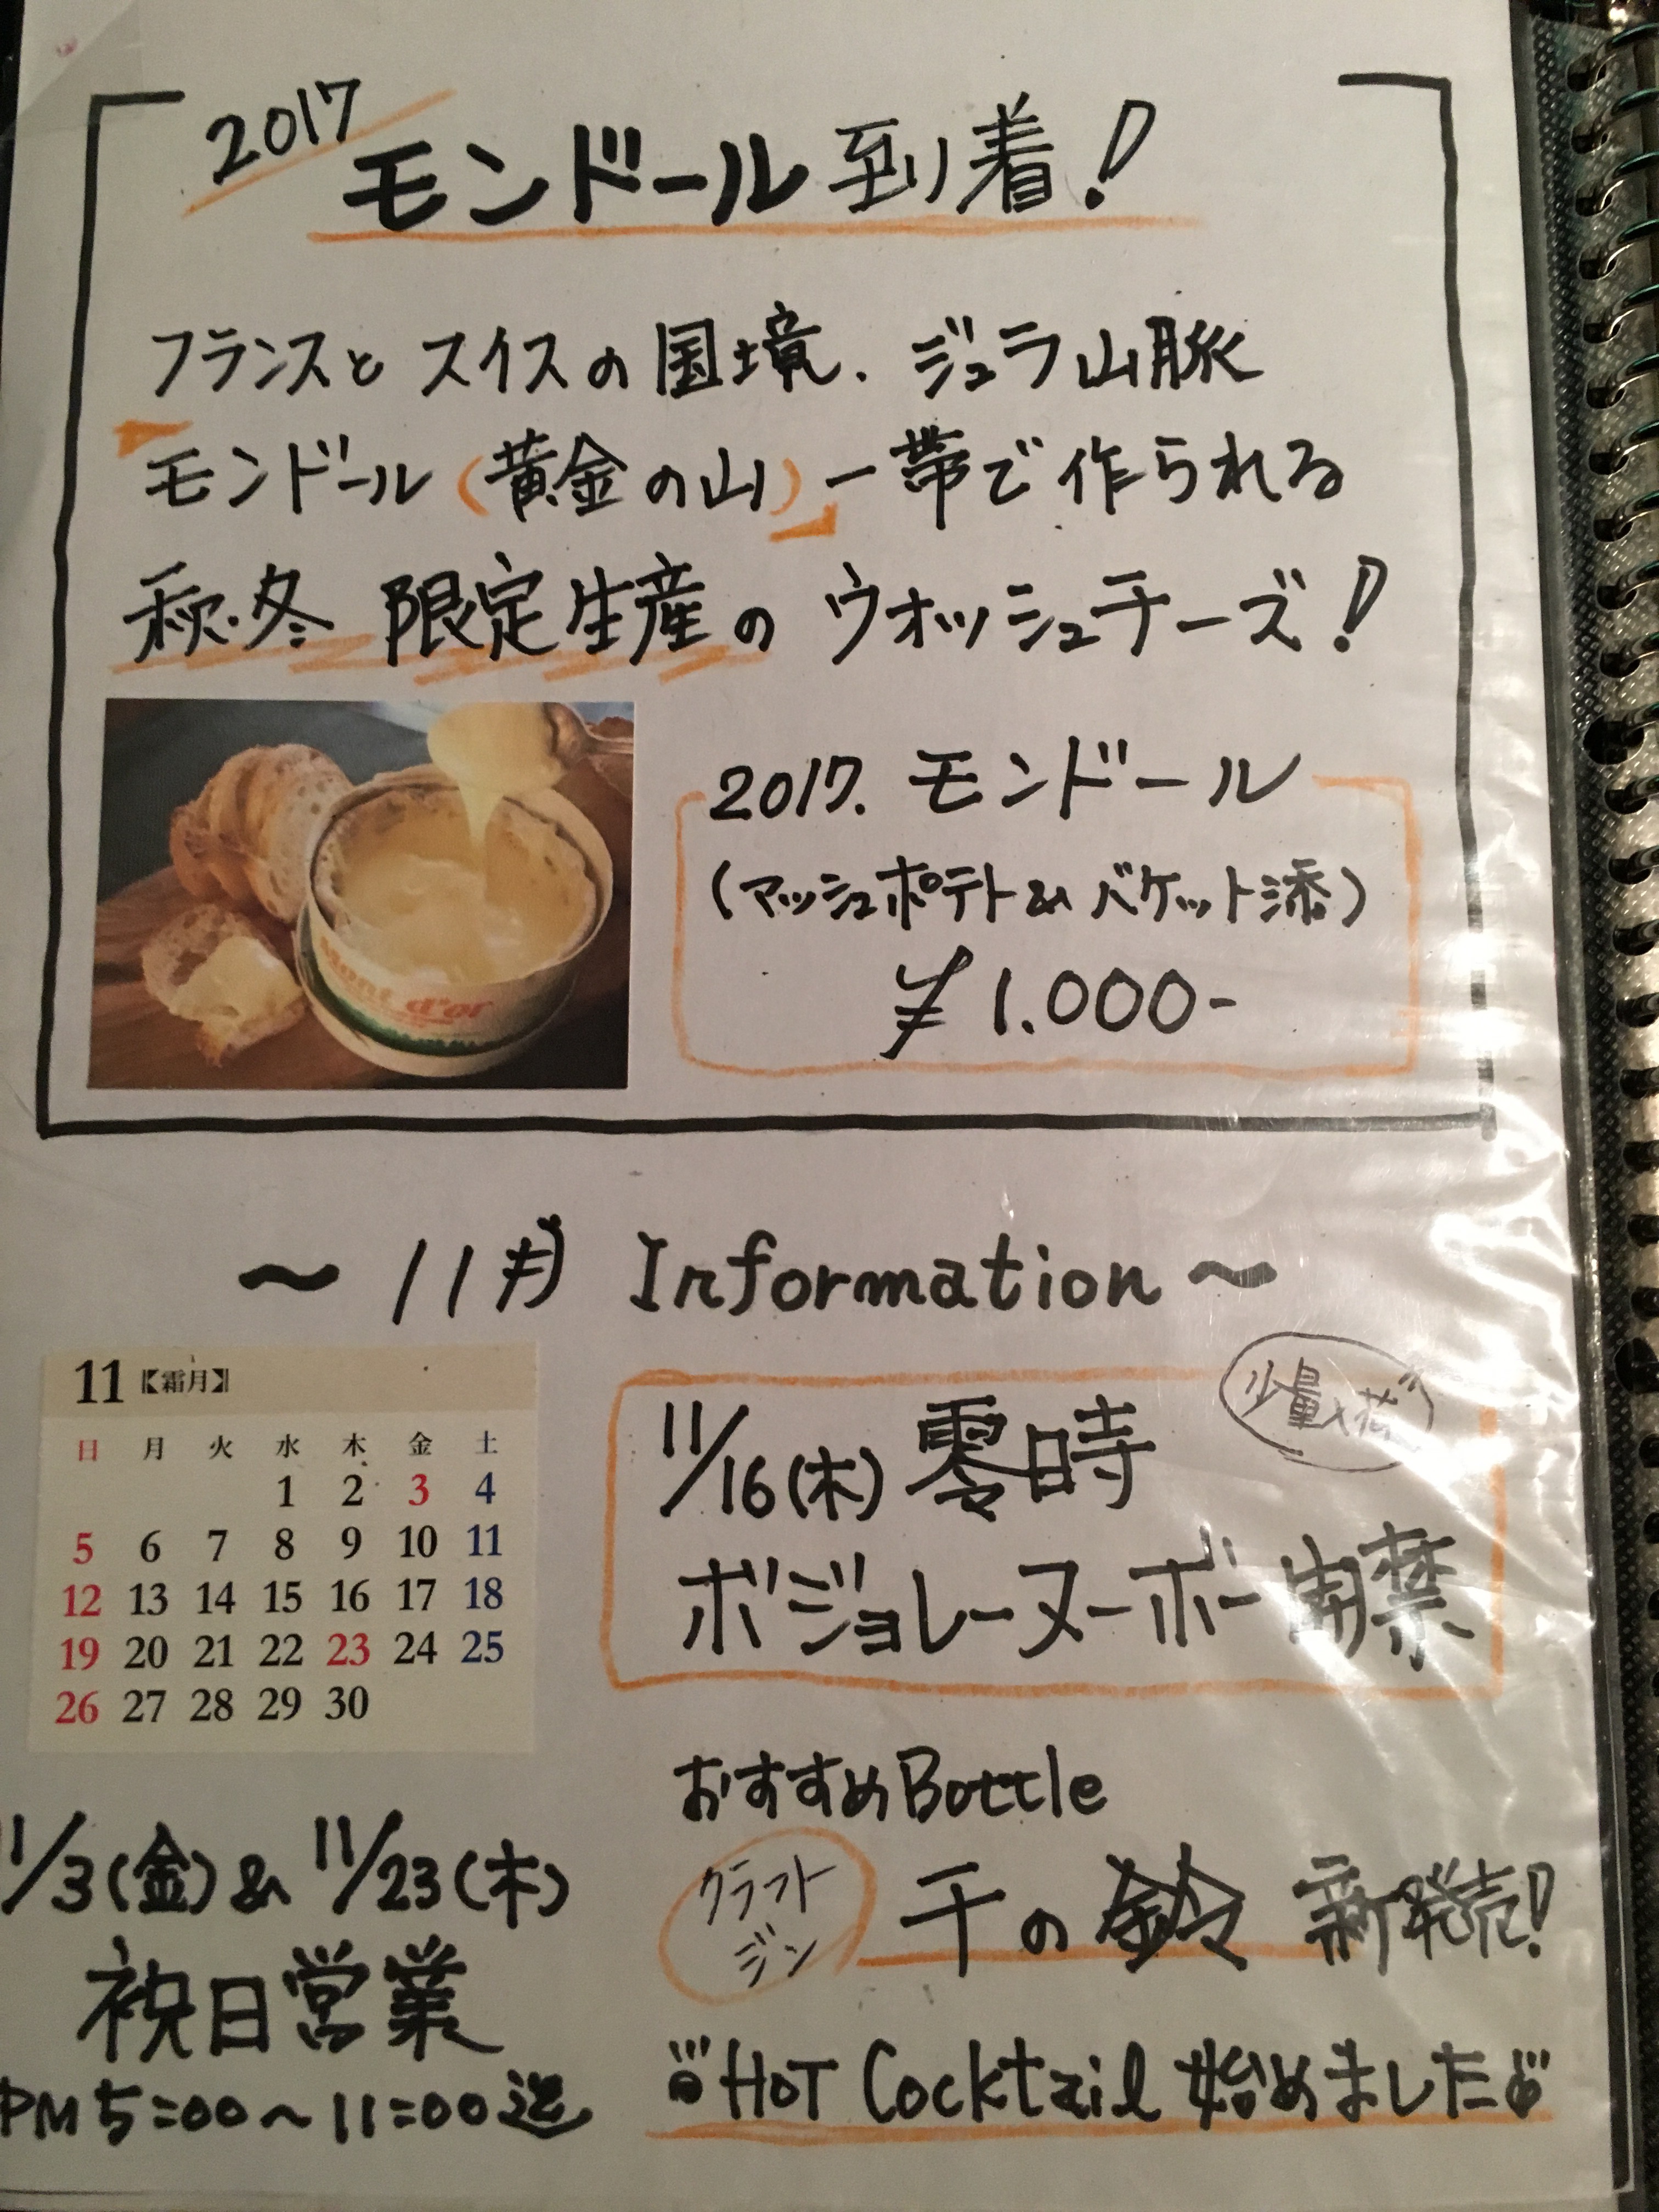 2017
モンドール到着!
フランスとスイスの国境.ジュラ山脈
モンドール(黄金の山)一帯で作られる
秋・冬 限定生産の ウォッシュチーズ!
Mont d'or
2017. モンドール
(マッシュポテト&バケット添)
¥1.000-
〜11月 Information〜
11【霜月】
日 月 火 水 木 金 土
1 2 3 4
5 6 7 8 9 10 11
12 13 14 15 16 17 18
19 20 21 22 23 24 25
26 27 28 29 30
少量入荷
11/16(木)零時
ボジョレーヌーボー開禁
11/3(金)&11/23(木)
祝日営業
PM5:00〜11:00迄
おすすめBottle
クラフト
ジン
千の鈴 新発売!
HOT Cocktail 始めました